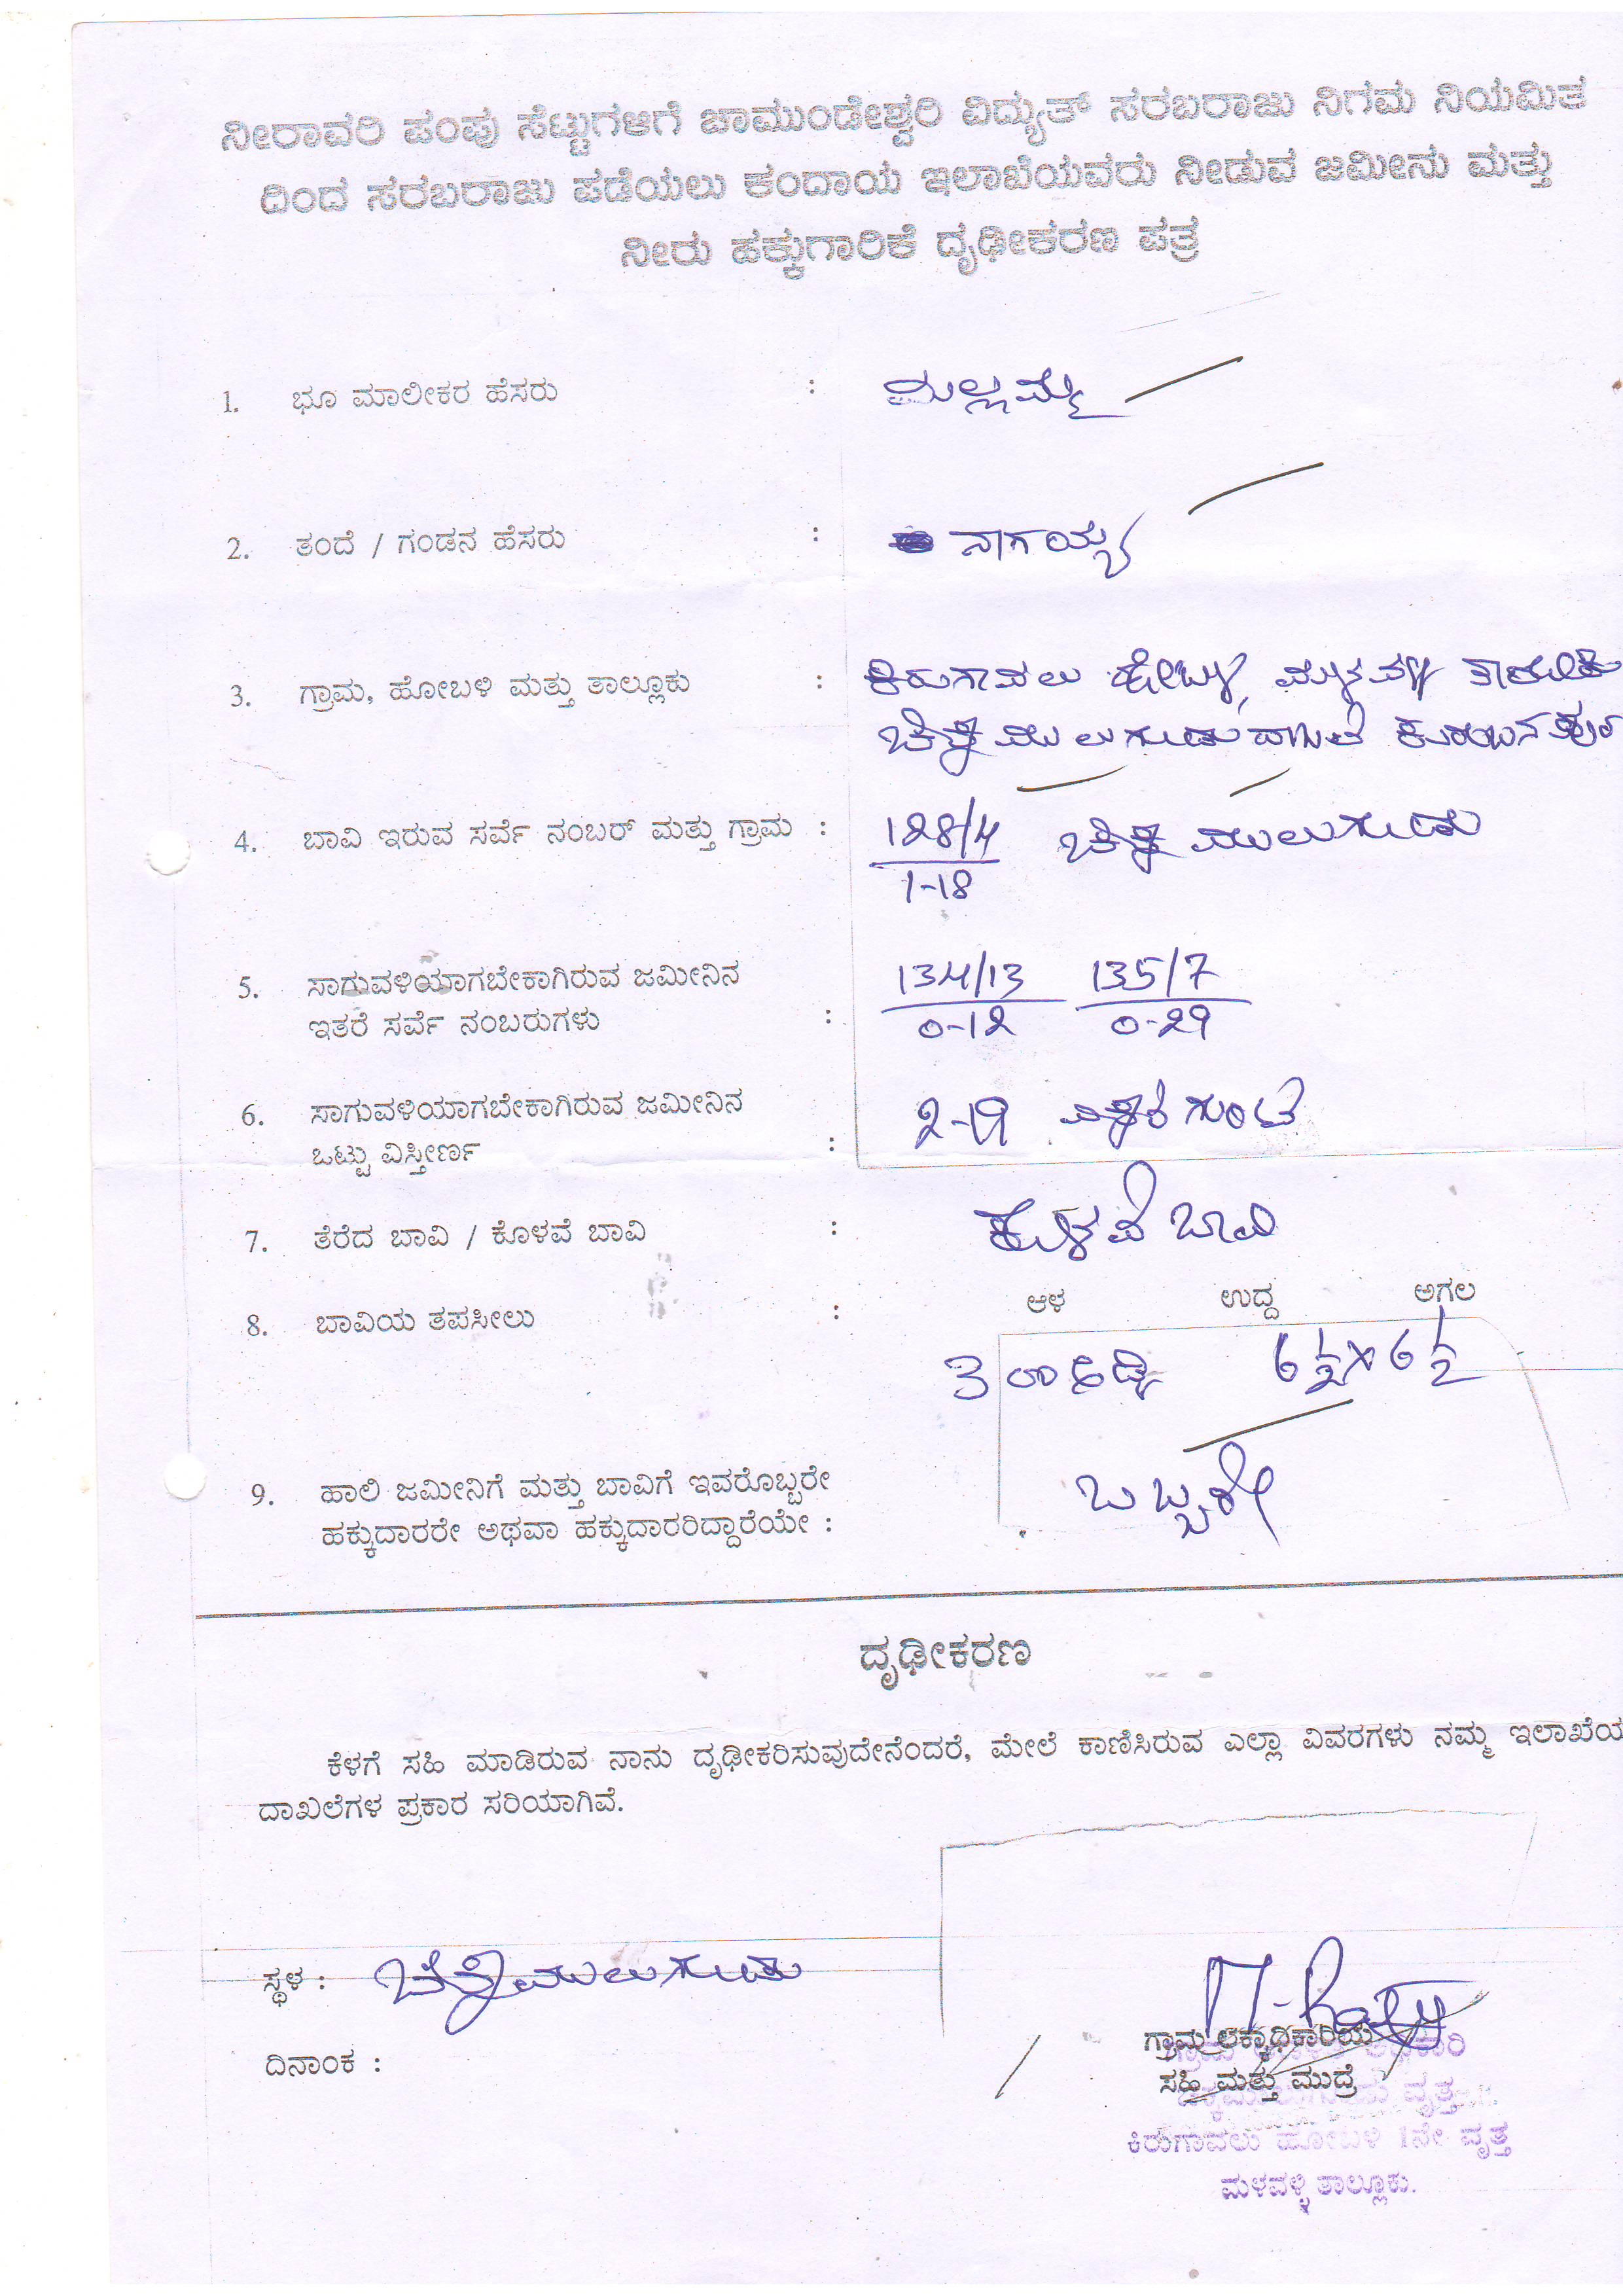 ನೀರಾವರಿ ಪಂಪು ಸೆಟ್ಟುಗಳಿಗೆ ಚಾಮುಂಡೇಶ್ವರಿ ವಿದ್ಯುತ್ ಸರಬರಾಜು ನಿಗಮ ನಿಯಮಿತ
ದಿಂದ ಸರಬರಾಜು ಪಡೆಯಲು ಕಂದಾಯ ಇಲಾಖೆಯವರು ನೀಡುವ ಜಮೀನು ಮತ್ತು
ನೀರು ಹಕ್ಕುಗಾರಿಕೆ ದೃಢೀಕರಣ ಪತ್ರ
1. ಭೂ ಮಾಲೀಕರ ಹೆಸರು : ಮಲ್ಲಮ್ಮ
2. ತಂದೆ / ಗಂಡನ ಹೆಸರು : ನಾಗಯ್ಯ
3. ಗ್ರಾಮ, ಹೋಬಳಿ ಮತ್ತು ತಾಲ್ಲೂಕು : ಕಿರುಗಾವಲು ಹೋಬಳಿ, ಮಳವಳ್ಳಿ ತಾಲೂಕು
4. ಬಾವಿ ಇರುವ ಸರ್ವೆ ನಂಬರ್ ಮತ್ತು ಗ್ರಾಮ : 128/4
1-18
5. ಸಾಗುವಳಿಯಾಗಬೇಕಾಗಿರುವ ಜಮೀನಿನ 134/13 135/7
ಇತರೆ ಸರ್ವೆ ನಂಬರುಗಳು : 0-12 0-29
6. ಸಾಗುವಳಿಯಾಗಬೇಕಾಗಿರುವ ಜಮೀನಿನ 2-19 ಎಕರೆ ಗುಂಟೆ
ಒಟ್ಟು ವಿಸ್ತೀರ್ಣ :
7. ತೆರೆದ ಬಾವಿ / ಕೊಳವೆ ಬಾವಿ : ಕೊಳವೆ ಬಾವಿ
8. ಬಾವಿಯ ತಪಸೀಲು : ಆಳ ಉದ್ದ ಅಗಲ
300 ಅಡಿ 6 1/2 x 6 1/2
9. ಹಾಲಿ ಜಮೀನಿಗೆ ಮತ್ತು ಬಾವಿಗೆ ಇವರೊಬ್ಬರೇ ಒಬ್ಬರೇ
ಹಕ್ಕುದಾರರೇ ಅಥವಾ ಹಕ್ಕುದಾರರಿದ್ದಾರೆಯೇ :
ದೃಢೀಕರಣ
ಕೆಳಗೆ ಸಹಿ ಮಾಡಿರುವ ನಾನು ದೃಢೀಕರಿಸುವುದೇನೆಂದರೆ, ಮೇಲೆ ಕಾಣಿಸಿರುವ ಎಲ್ಲಾ ವಿವರಗಳು ನಮ್ಮ ಇಲಾಖೆಯ
ದಾಖಲೆಗಳ ಪ್ರಕಾರ ಸರಿಯಾಗಿವೆ.
ಸ್ಥಳ :
ದಿನಾಂಕ :
ಗ್ರಾಮ ಲೆಕ್ಕಾಧಿಕಾರಿಯ
ಸಹಿ ಮತ್ತು ಮುದ್ರೆ
ವೃತ್ತ
ಕಿರುಗಾವಲು ಹೋಬಳಿ 1ನೇ ವೃತ್ತ
ಮಳವಳ್ಳಿ ತಾಲ್ಲೂಕು.